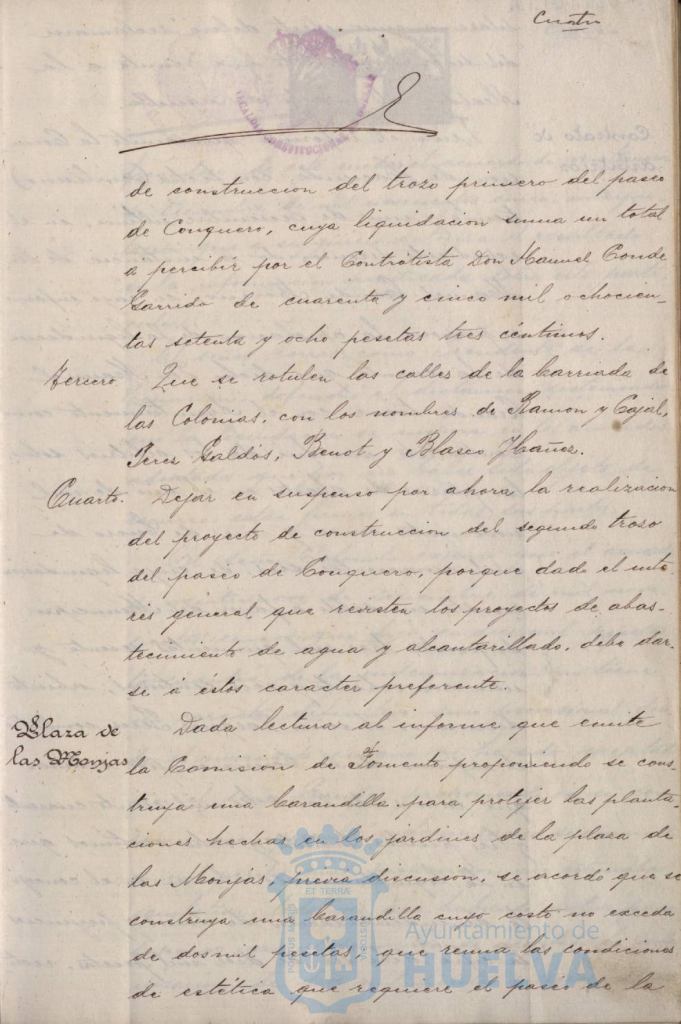 Cuatro
de construccion del trozo primero del paseo
de Conquero, cuya liquidacion suma un total
á percibir por el Contratista Don Manuel Conde
Garrido de cuarenta y cinco mil ochocien-
tas setenta y ocho pesetas tres céntimos.
Tercero. Que se rotulen las calles de la barriada de
las Colonias, con los nombres de Ramon y Cajal,
Perez Galdós, Benot y Blasco Ybañez.
Cuarto. Dejar en suspenso por ahora la realizacion
del proyecto de construccion del segundo trozo
del paseo de Conquero, porque dado el inte-
rés general que revisten los proyectos de abas-
tecimiento de agua y alcantarillado, debe dar-
se á éstos caracter preferente.
Plaza de
las Monjas
Dada lectura al informe que emite
la Comision de Fomento proponiendo se cons-
truya una barandilla para protejer las planta-
ciones hechas en los jardines de la plaza de
las Monjas, previa discusion, se acordó que se
construya una barandilla cuyo costo no exceda
de dosmil pesetas, que reuna las condiciones
de estética que requiere el paseo de la
PORTUS MARIS ET TERRAE CUSTODIA
Ayuntamiento de
HUELVA